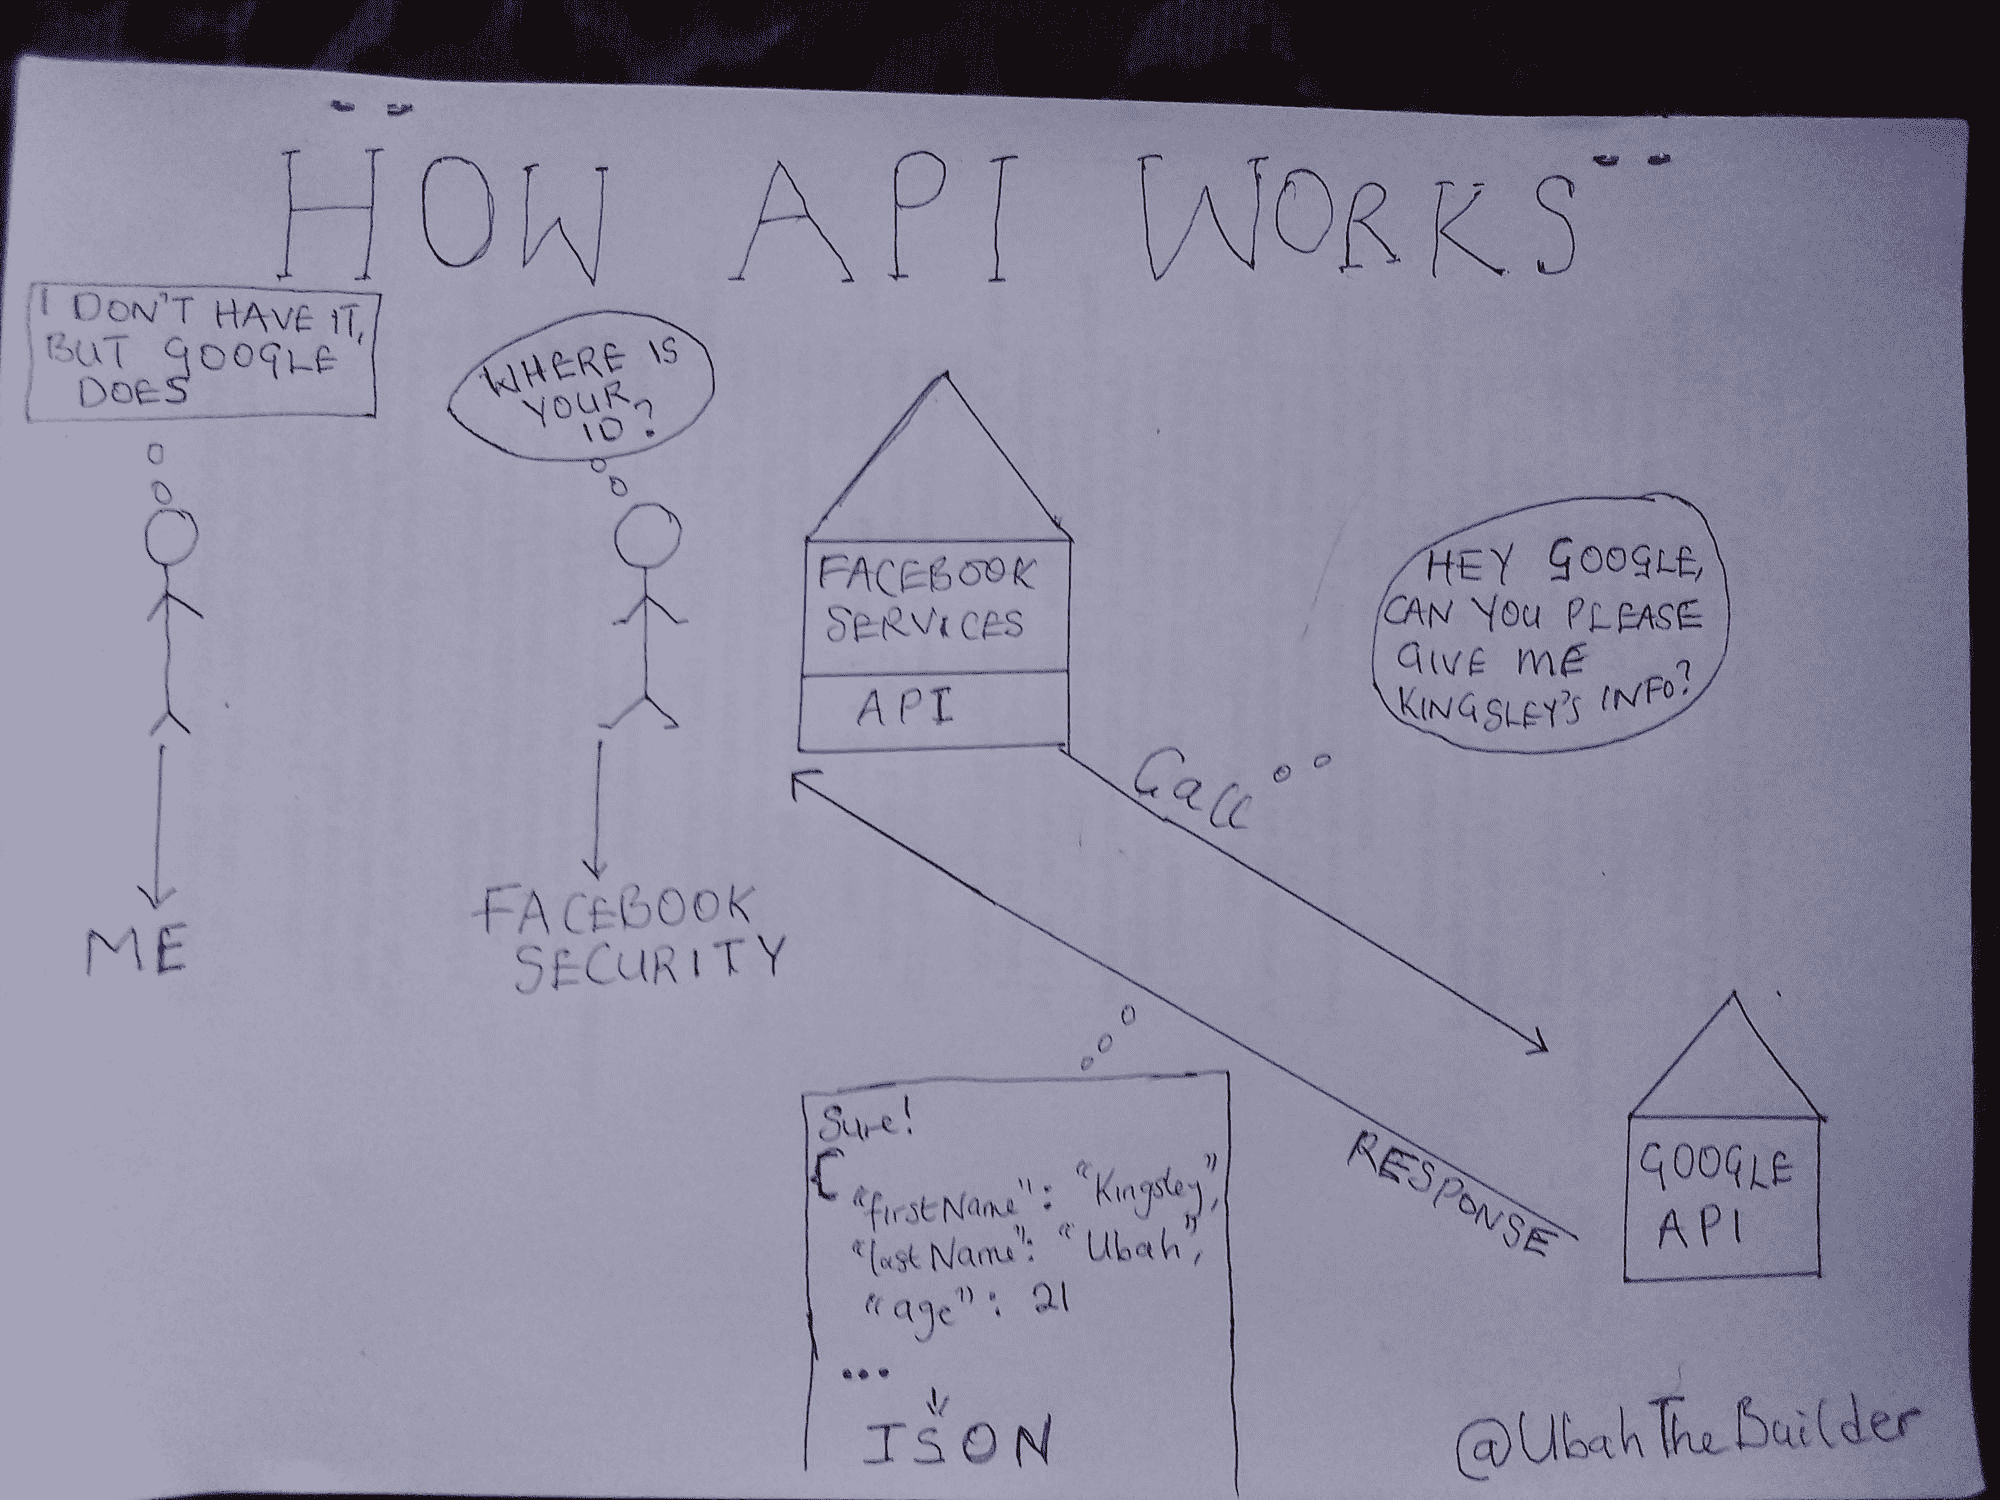 HOW API WORKS
I DON'T HAVE IT,
BUT GOOGLE
DOES
WHERE IS
YOUR
ID?
FACEBOOK
SERVICES
API
HEY GOOGLE,
CAN YOU PLEASE
GIVE ME
KINGSLEY'S INFO?
Call
ME
FACEBOOK
SECURITY
RESPONSE
GOOGLE
API
Sure!
{
"firstName": "Kingsley",
"lastName": "Ubah",
"age": 21
...
JSON
@UbahTheBuilder